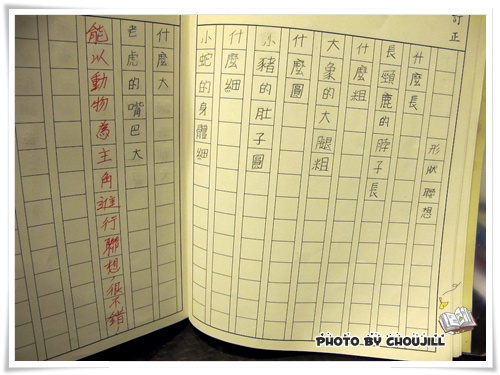 訂正
形狀聯想
什麼長
長頸鹿的脖子長
什麼粗
大象的大腿粗
什麼圓
小豬的肚子圓
什麼細
小蛇的身體細
什麼大
老虎的嘴巴大
能以動物為主角進行聯想,很不錯
PHOTO BY CHOUJILL